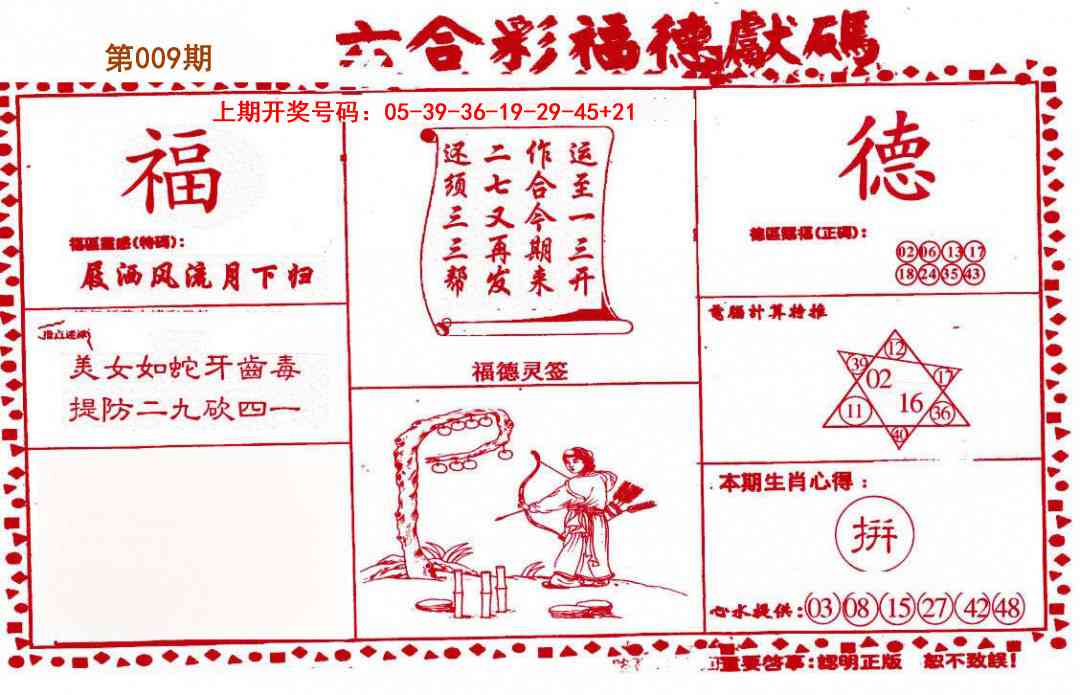 第009期
六合彩福德獻碼
上期开奖号码：05-39-36-19-29-45+21
福
福區靈感(特碼)：
屐洒风流月下归
美女如蛇牙齒毒
提防二九砍四一
运至一三开
作合今期来
二七又再发
还须三三帮
福德灵签
德
德區賜福(正碼)：
02 06 13 17
18 24 35 43
電腦計算特推
12
39 02 17
11 16 36
40
本期生肖心得：
拼
心水提供：03 08 15 27 42 48
重要啓事：認明正版 恕不致誤！